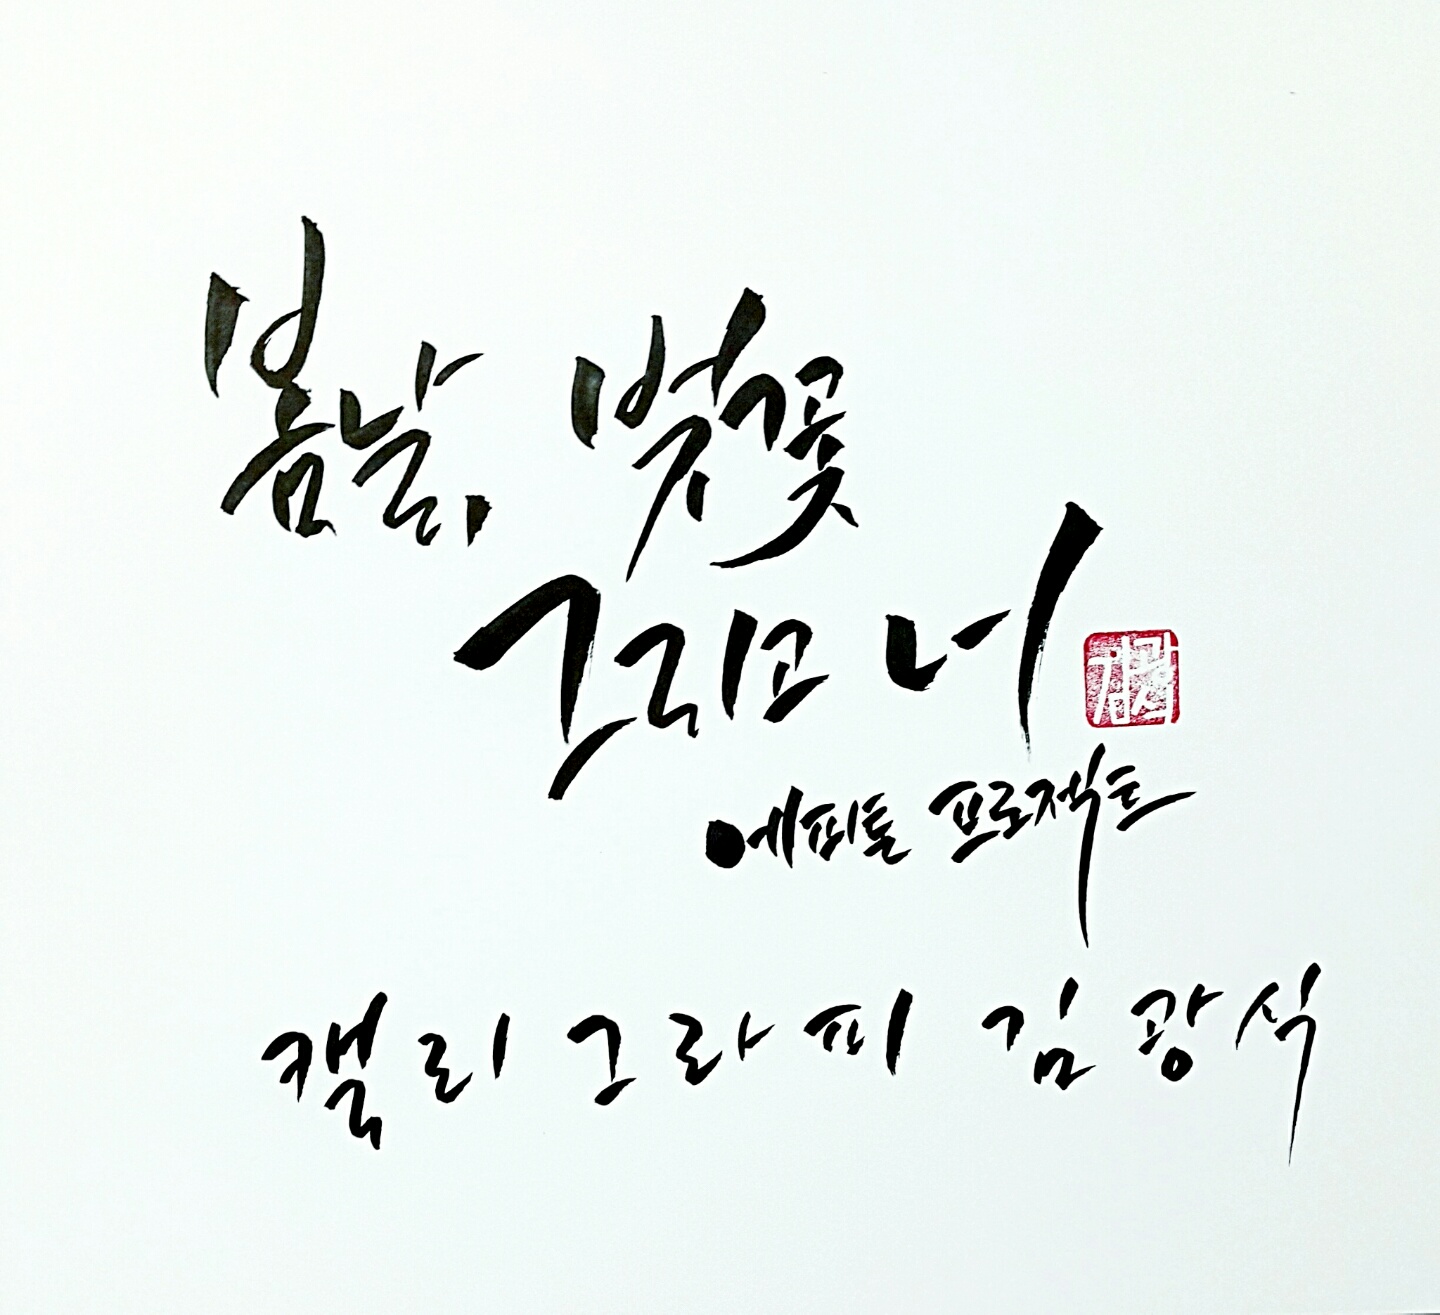 봄날, 벚꽃
그리고 너
에피톤 프로젝트
캘리그라피 김광식